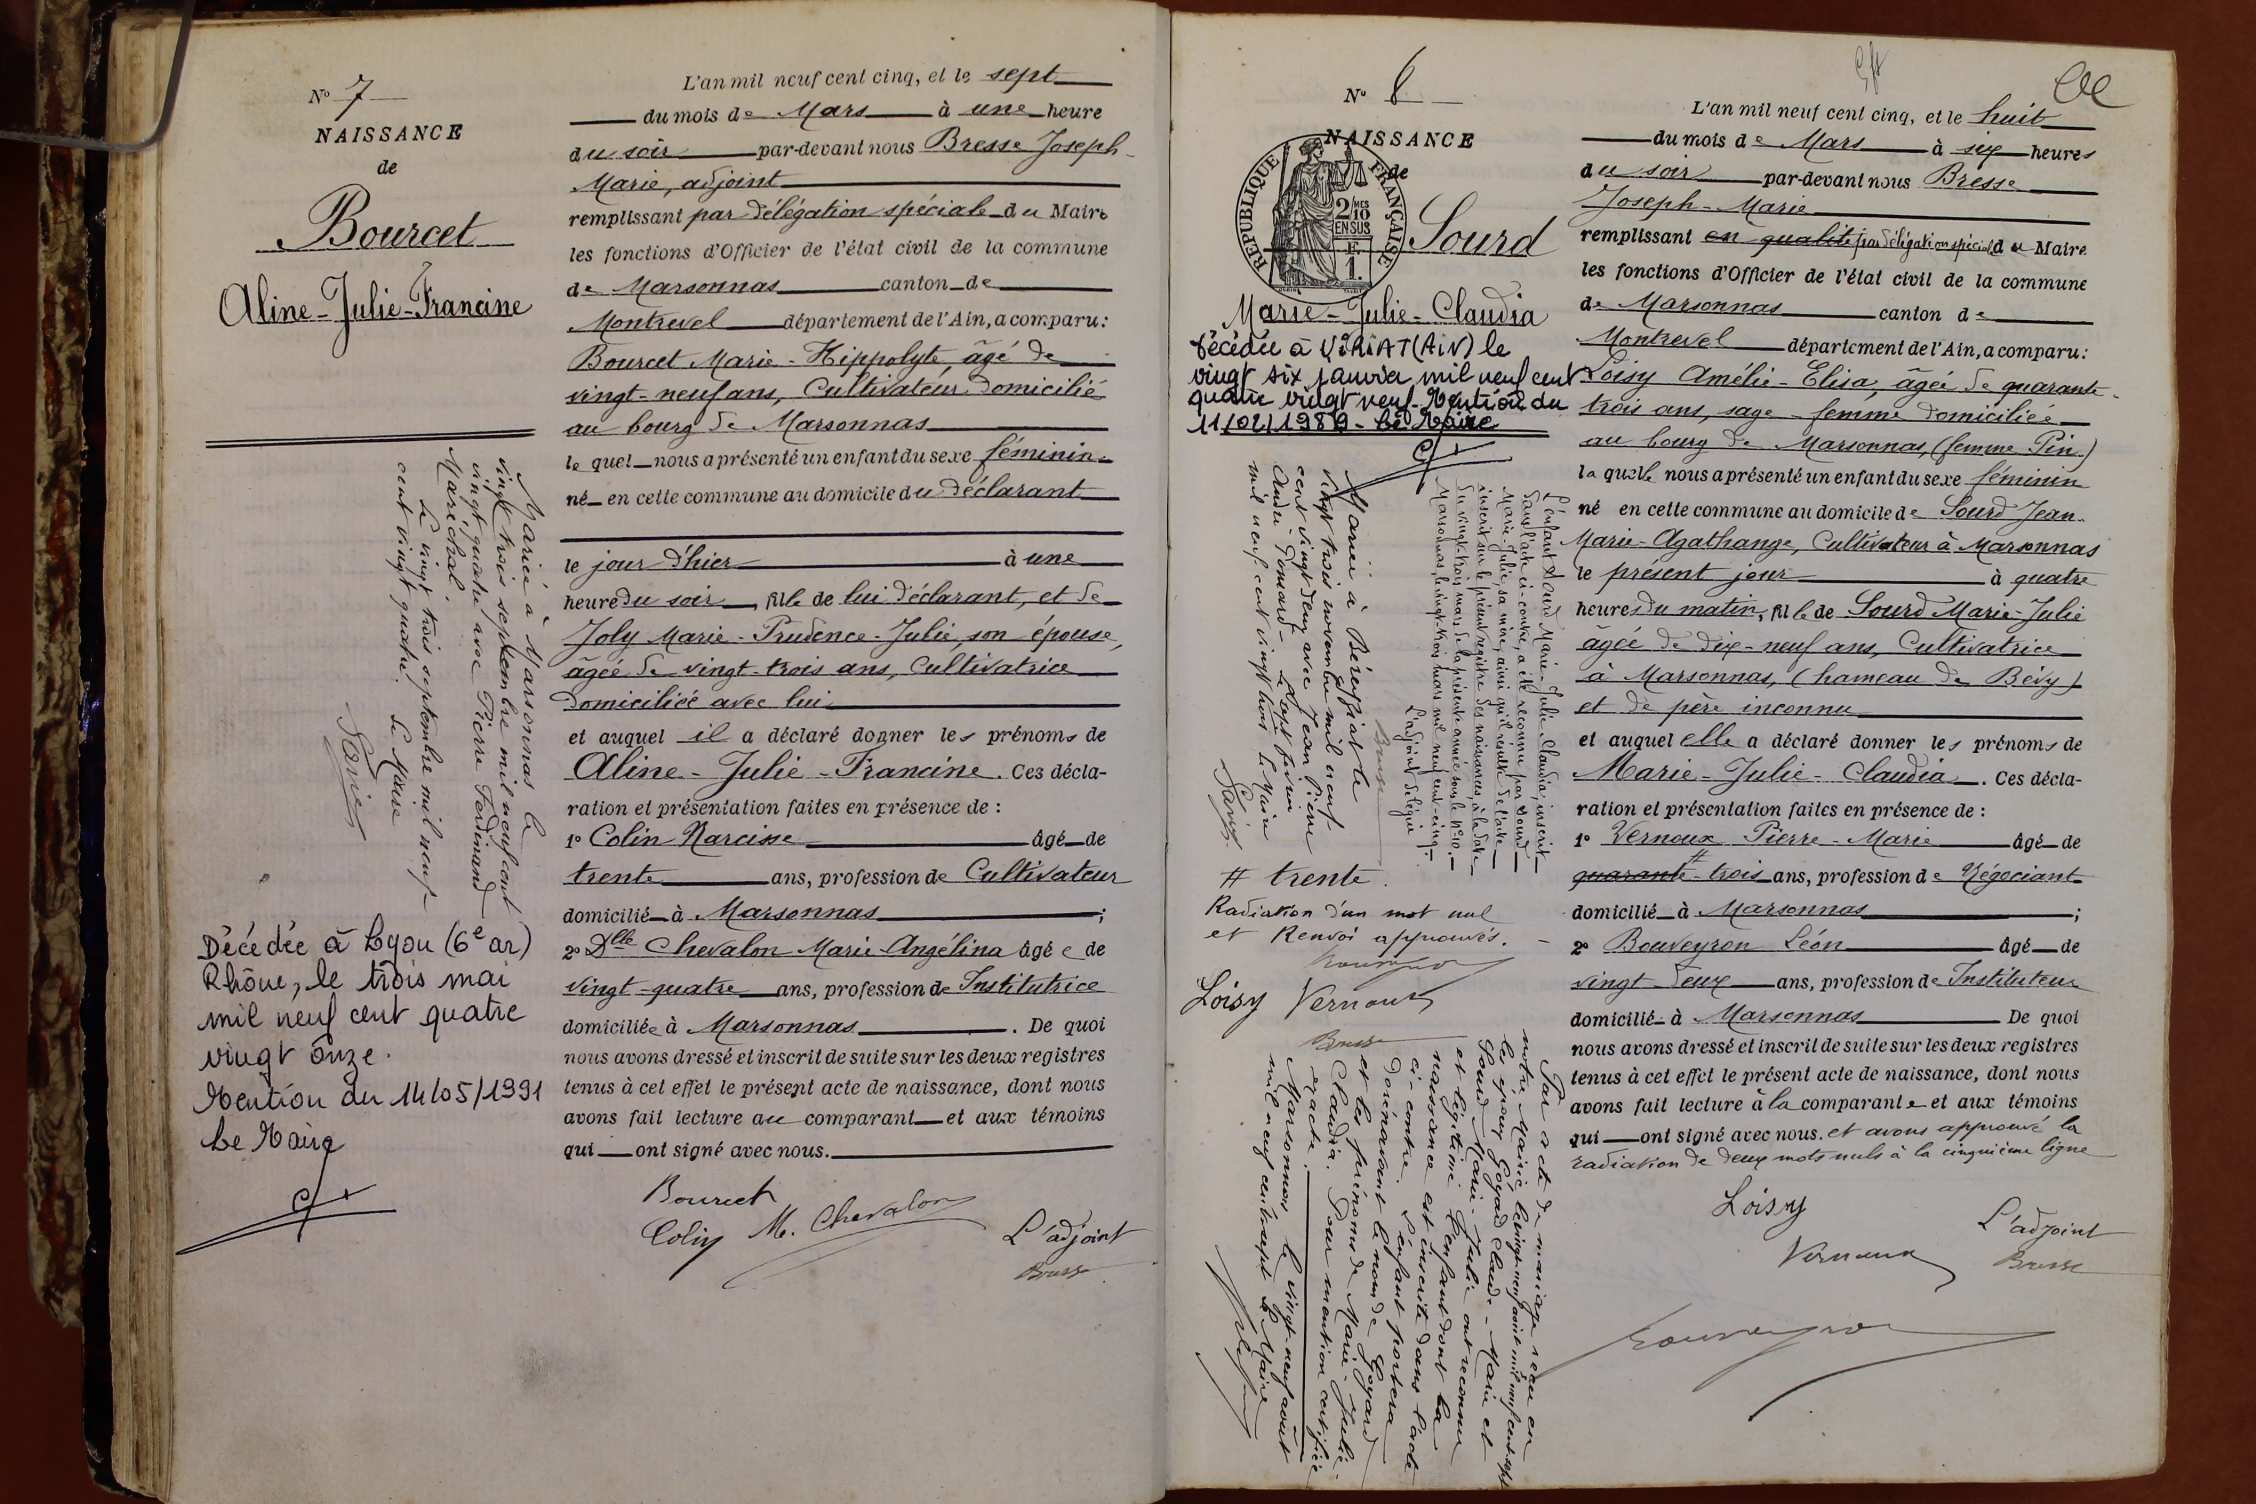 N° 7
NAISSANCE
de
Bourcet
Aline-Julie-Francine
Mariée à Marsonnas le
vingt trois septembre mil neuf cent
vingt quatre avec Pierre Ferdinand
Maréchal.
Le vingt trois septembre mil neuf
cent vingt quatre. Le Maire
Décédée à Lyon (6e ar)
Rhône, le trois mai
mil neuf cent quatre
vingt onze.
Mention du 14/05/1991
Le Maire
L'an mil neuf cent cinq, et le sept
du mois de Mars à une heure
du soir par-devant nous Bresse Joseph-
Marie, adjoint
remplissant par délégation spéciale du Maire
les fonctions d'Officier de l'état civil de la commune
de Marsonnas canton de
Montrevel département de l'Ain, a comparu:
Bourcet Marie-Hippolyte, âgé de
vingt-neuf ans, Cultivateur domicilié
au bourg de Marsonnas
lequel nous a présenté un enfant du sexe féminin
né en cette commune au domicile du déclarant
le jour d'hier à une
heure du soir, fille de lui déclarant, et de
Joly Marie-Prudence-Julie, son épouse,
âgée de vingt-trois ans, Cultivatrice
domiciliée avec lui
et auquel il a déclaré donner les prénoms de
Aline-Julie-Francine. Ces décla-
ration et présentation faites en présence de :
1° Colin Narcisse âgé de
trente ans, profession de Cultivateur
domicilié à Marsonnas ;
2° Dlle Chevalon Marie-Angélina âgée de
vingt-quatre ans, profession de Institutrice
domiciliée à Marsonnas. De quoi
nous avons dressé et inscrit de suite sur les deux registres
tenus à cet effet le présent acte de naissance, dont nous
avons fait lecture au comparant et aux témoins
qui ont signé avec nous.
Bourcet
Colin M. Chevalon L'adjoint
Bresse
N° 8
NAISSANCE
de
RÉPUBLIQUE FRANÇAISE
2/10 MES
EN SUS
F.
1.
Sourd
Marie-Julie-Claudia
Décédée à VIRIAT (AIN) le
vingt six janvier mil neuf cent
quatre vingt neuf. Mention du
11/02/1989 - Le Maire
L'enfant Sourd Marie-Julie Claudia, inscrit
dans l'acte ci-contre, a été reconnu par Sourd
Marie-Julie, sa mère, ainsi qu'il résulte de l'acte
inscrit sur le présent registre des naissances, à la date
du vingt-trois mars de la présente année sous le N° 10.
Marsonnas, le vingt-trois mars mil neuf cent-cinq.
L'adjoint délégué
Bresse
Mariée à Béréziat le
vingt trois novembre mil neuf
cent vingt deux avec Jean Pierre
mil neuf cent vingt trois Le Maire
# trente.
Radiation d'un mot nul
et Renvoi approuvés.
Bouveyron
Loisy Vernoux
Bresse
Par acte de mariage reçu en
notre Mairie, le vingt-neuf août mil neuf cent sept
les époux Goyard Claude-Marie et
Sourd Marie-Julie ont reconnu
et légitimé l'enfant dont la
naissance est inscrite dans l'acte
ci-contre. L'enfant portera
dorénavant le nom de Goyard
et les prénoms de Marie-Julie-
Claudia. Pour mention certifiée
exacte.
Marsonnas le vingt-neuf août
mil neuf cent sept Le Maire
L'an mil neuf cent cinq, et le huit
du mois de Mars à six heures
du soir par-devant nous Bresse
Joseph-Marie
remplissant en qualité par délégation spéciale du Maire
les fonctions d'Officier de l'état civil de la commune
de Marsonnas canton de
Montrevel département de l'Ain, a comparu:
Loisy Amélie-Elisa, âgée de quarante-
trois ans, sage-femme domiciliée
au bourg de Marsonnas, (femme Pin)
laquelle nous a présenté un enfant du sexe féminin
né en cette commune au domicile de Sourd Jean-
Marie-Agathange, Cultivateur à Marsonnas
le présent jour à quatre
heures du matin, fille de Sourd Marie-Julie
âgée de dix-neuf ans, Cultivatrice
à Marsonnas, (hameau de Bévy)
et de père inconnu
et auquel elle a déclaré donner les prénoms de
Marie-Julie-Claudia. Ces décla-
ration et présentation faites en présence de :
1° Vernoux Pierre-Marie âgé de
quarante # trois ans, profession de Négociant
domicilié à Marsonnas ;
2° Bouveyron Léon âgé de
vingt-deux ans, profession de Instituteur
domicilié à Marsonnas De quoi
nous avons dressé et inscrit de suite sur les deux registres
tenus à cet effet le présent acte de naissance, dont nous
avons fait lecture à la comparante et aux témoins
qui ont signé avec nous. et avons approuvé la
radiation de deux mots nuls à la cinquième ligne
Loisy
L'adjoint
Vernoux Bresse
Bouveyron